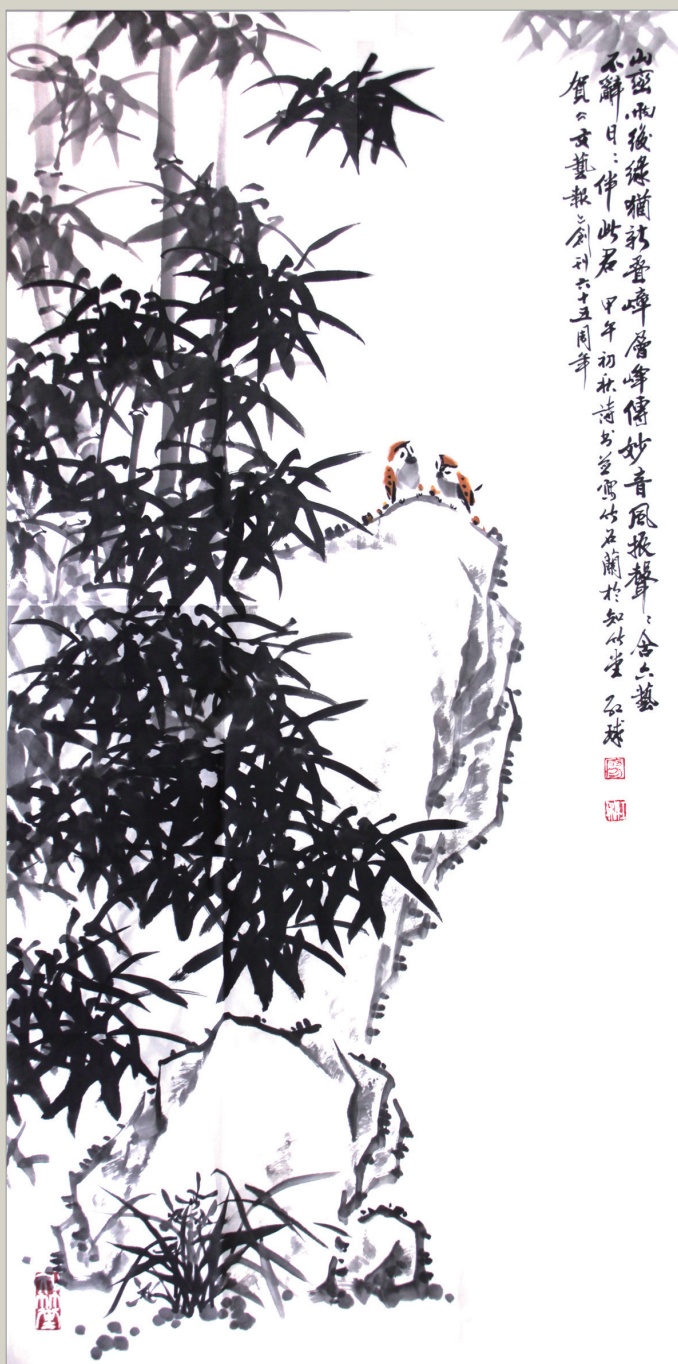 山巒雨後綠猶新叠嶂層峰傳妙音風振聲〻含六藝
不辭日〻伴此君 甲午初秋詩書並寫竹石蘭於知竹堂
賀《文藝報》創刊六十五周年
知竹堂